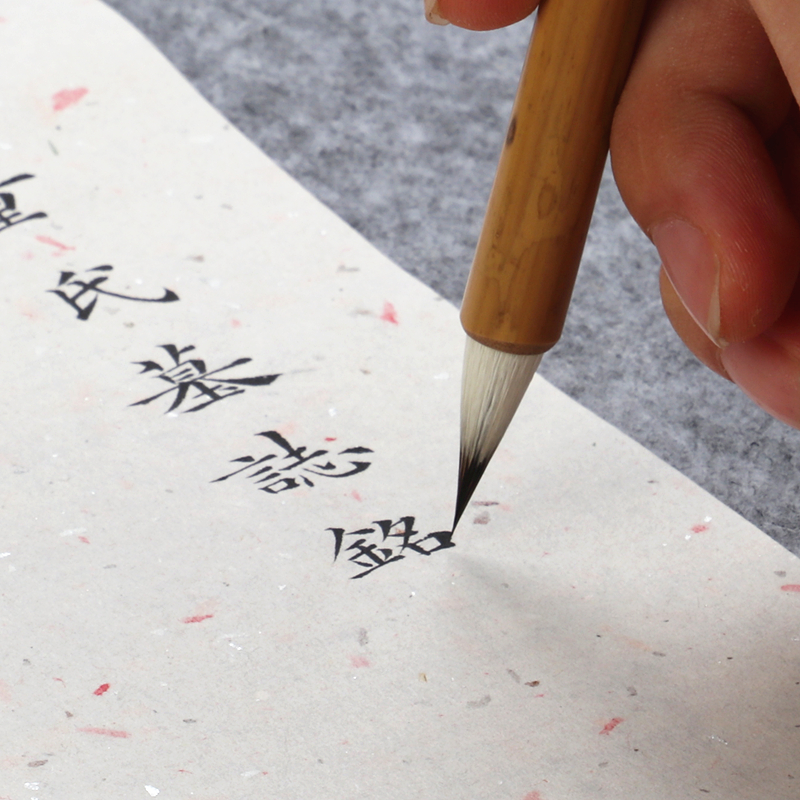 氏墓誌銘